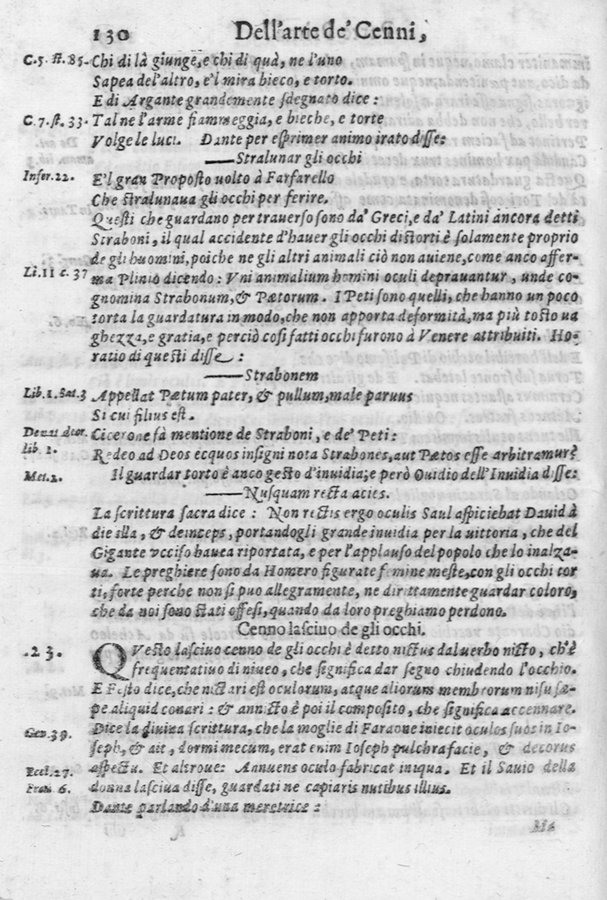 130 Dell'arte de' Cenni,
C.5. st. 85. Chi di là giunge, e chi di quà, ne l'uno
Sapea del'altro, e'l mira bieco, e torto.
E di Argante grandemente sdegnato dice:
C.7. st. 33. Tal ne l'arme fiammeggia, e bieche, e torte
Volge le luci. Dante per esprimer animo irato disse:
——Stralunar gli occhi
Infer. 22. E'l gran Proposto uolto à Farfarello
Che stralunaua gli occhi per ferire.
Questi che guardano per trauerso sono da' Greci, e da' Latini ancora detti
Straboni, il qual accidente d'hauer gli occhi distorti è solamente proprio
de gli huomini, poiche ne gli altri animali ciò non auiene, come anco affer-
Li. 11 c. 37 ma Plinio dicendo: Vni animalium homini oculi deprauantur, unde co-
gnomina Strabonum, & Pætorum. I Peti sono quelli, che hanno un poco
torta la guardatura in modo, che non apporta deformità, ma più tosto ua
ghezza, e gratia, e perciò cosi fatti occhi furono à Venere attribuiti. Ho-
ratio di questi disse:
——Strabonem
Lib. 1. Sat. 3 Appellat Pætum pater, & pullum, male paruus
Si cui filius est.
De nat. deor. Cicerone fà mentione de Straboni, e de' Peti:
lib. 1. Redeo ad Deos ecquos insigni nota Strabones, aut Pætos esse arbitramur?
Met. 2. Il guardar torto è anco gesto d'inuidia; e però Ouidio dell'Inuidia disse:
——Nusquam recta acies.
La scrittura sacra dice: Non rectis ergo oculis Saul aspiciebat Dauid à
die illa, & deinceps, portandogli grande inuidia per la uittoria, che del
Gigante vcciso hauea riportata, e per l'applauso del popolo che lo inalza-
ua. Le preghiere sono da Homero figurate femine meste, con gli occhi tor
ti, forte perche non si puo allegramente, ne dirittamente guardar coloro,
che da noi sono stati offesi, quando da loro preghiamo perdono.
Cenno lasciuo de gli occhi.
.23. QVesto lasciuo cenno de gli occhi è detto nictus dal uerbo nicto, ch'è
frequentatiuo di niueo, che significa dar segno chiudendo l'occhio.
E Festo dice, che nictari est oculorum, atque aliorum membrorum nisu sæ-
pe aliquid conari: & annicto è poi il composito, che significa accennare.
Gen. 39. Dice la diuina scrittura, che la moglie di Faraone iniecit oculos suos in Io-
seph, & ait, dormi mecum, erat enim Ioseph pulchra facie, & decorus
Eccl. 27. aspectu. Et altroue: Annuens oculo fabricat iniqua. Et il Sauio della
Prou. 6. donna lasciua disse, guardati ne capiaris nutibus illius.
Dante parlando d'una meretrice: